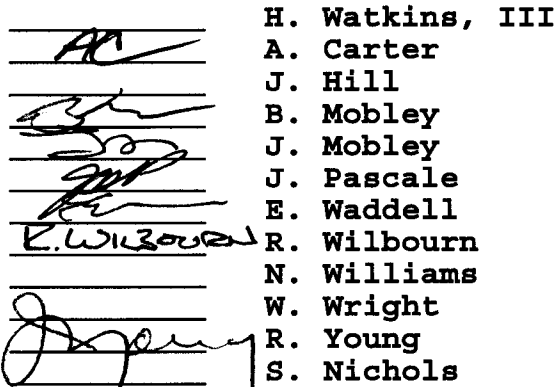 H. Watkins, III
AC A. Carter
J. Hill
B. Mobley
J. Mobley
J. Pascale
E. Waddell
R. WILBOURN R. Wilbourn
N. Williams
W. Wright
R. Young
S. Nichols